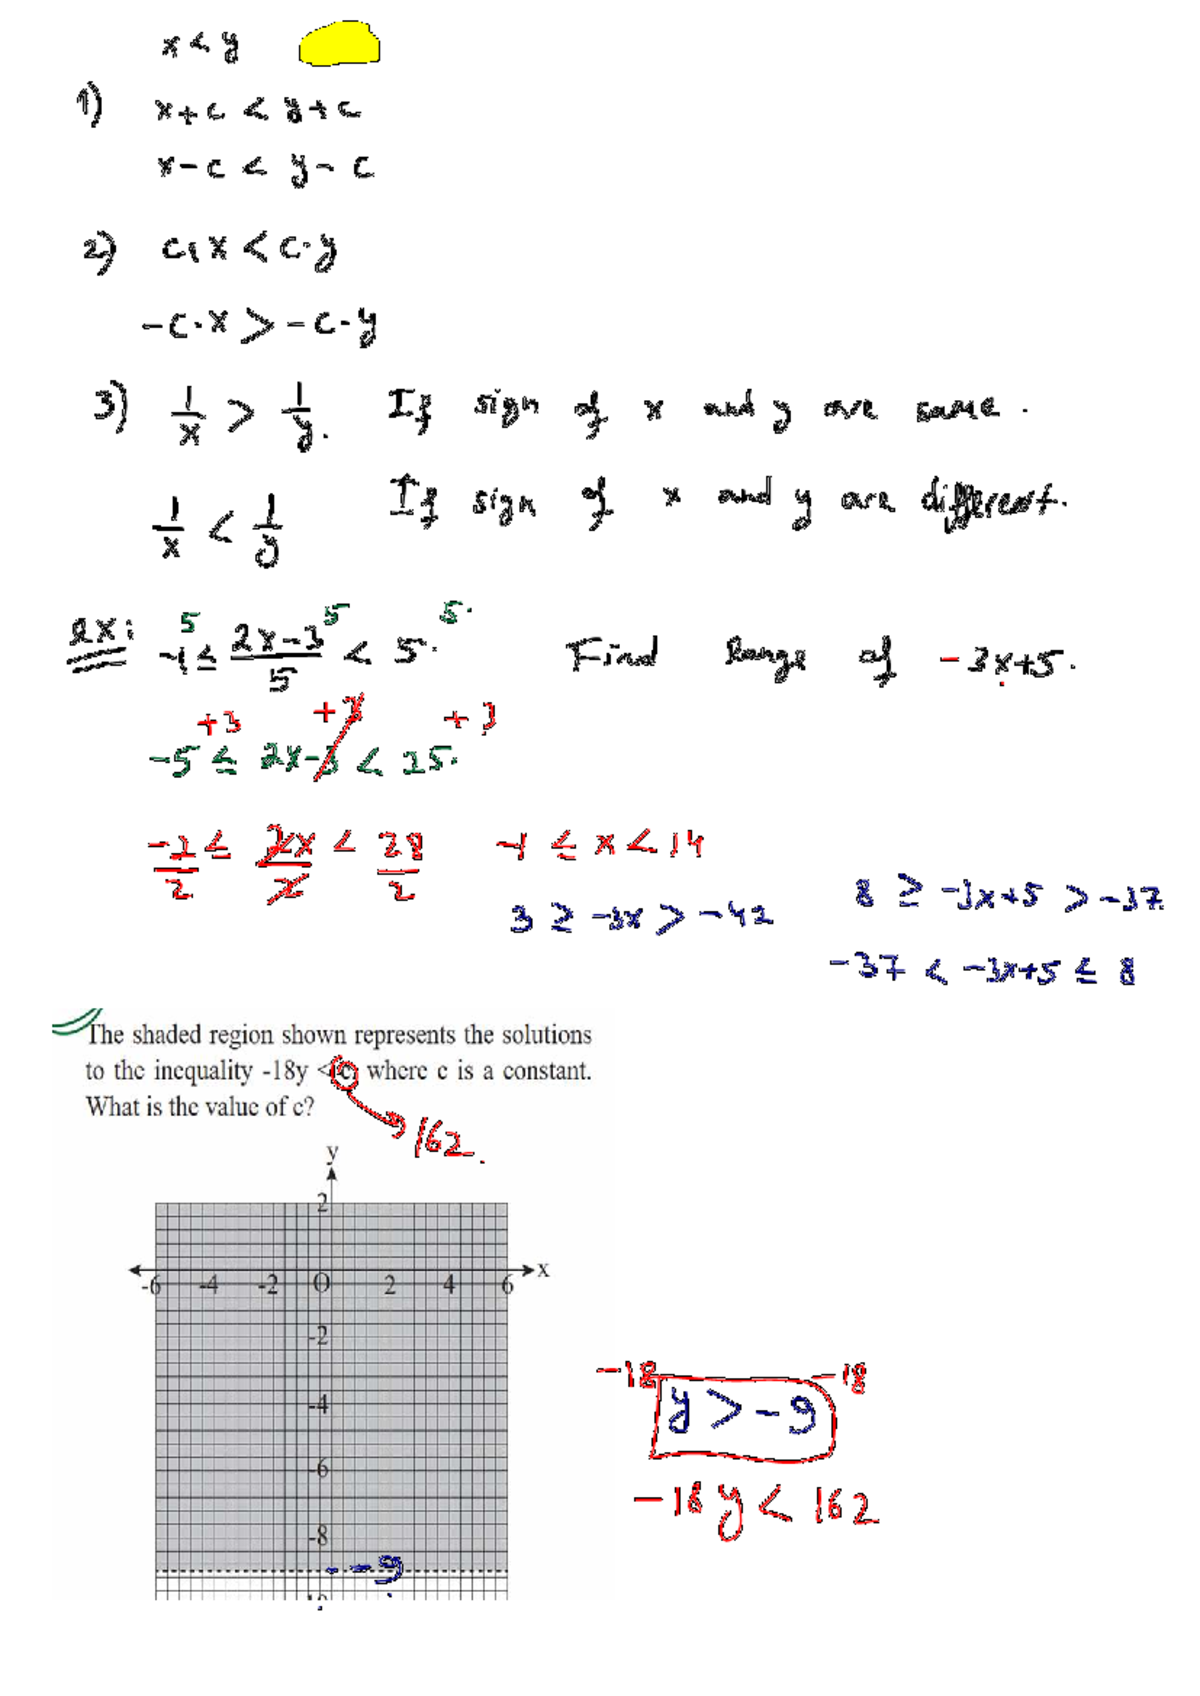 x < y
1) x+c < y+c
x-c < y-c
2) c·x < c·y
-c·x > -c·y
3) 1/x > 1/y. If sign of x and y are same.
1/x < 1/y If sign of x and y are different.
ex: 5 5 5.
-1 ≤ (2x-3)/5 < 5. Find Range of -3x+5.
+3 +3 +3
-5 ≤ 2x-3 < 25.
-2/2 ≤ 2x/2 < 28/2 -1 ≤ x < 14
3 ≥ -3x > -42 8 ≥ -3x+5 > -37
-37 < -3x+5 ≤ 8
The shaded region shown represents the solutions
to the inequality -18y < c, where c is a constant.
What is the value of c?
162.
y
2
-6 -4 -2 O 2 4 6 x
-2
-4
-6
-8
-9
-18 y > -9 -18
-18y < 162